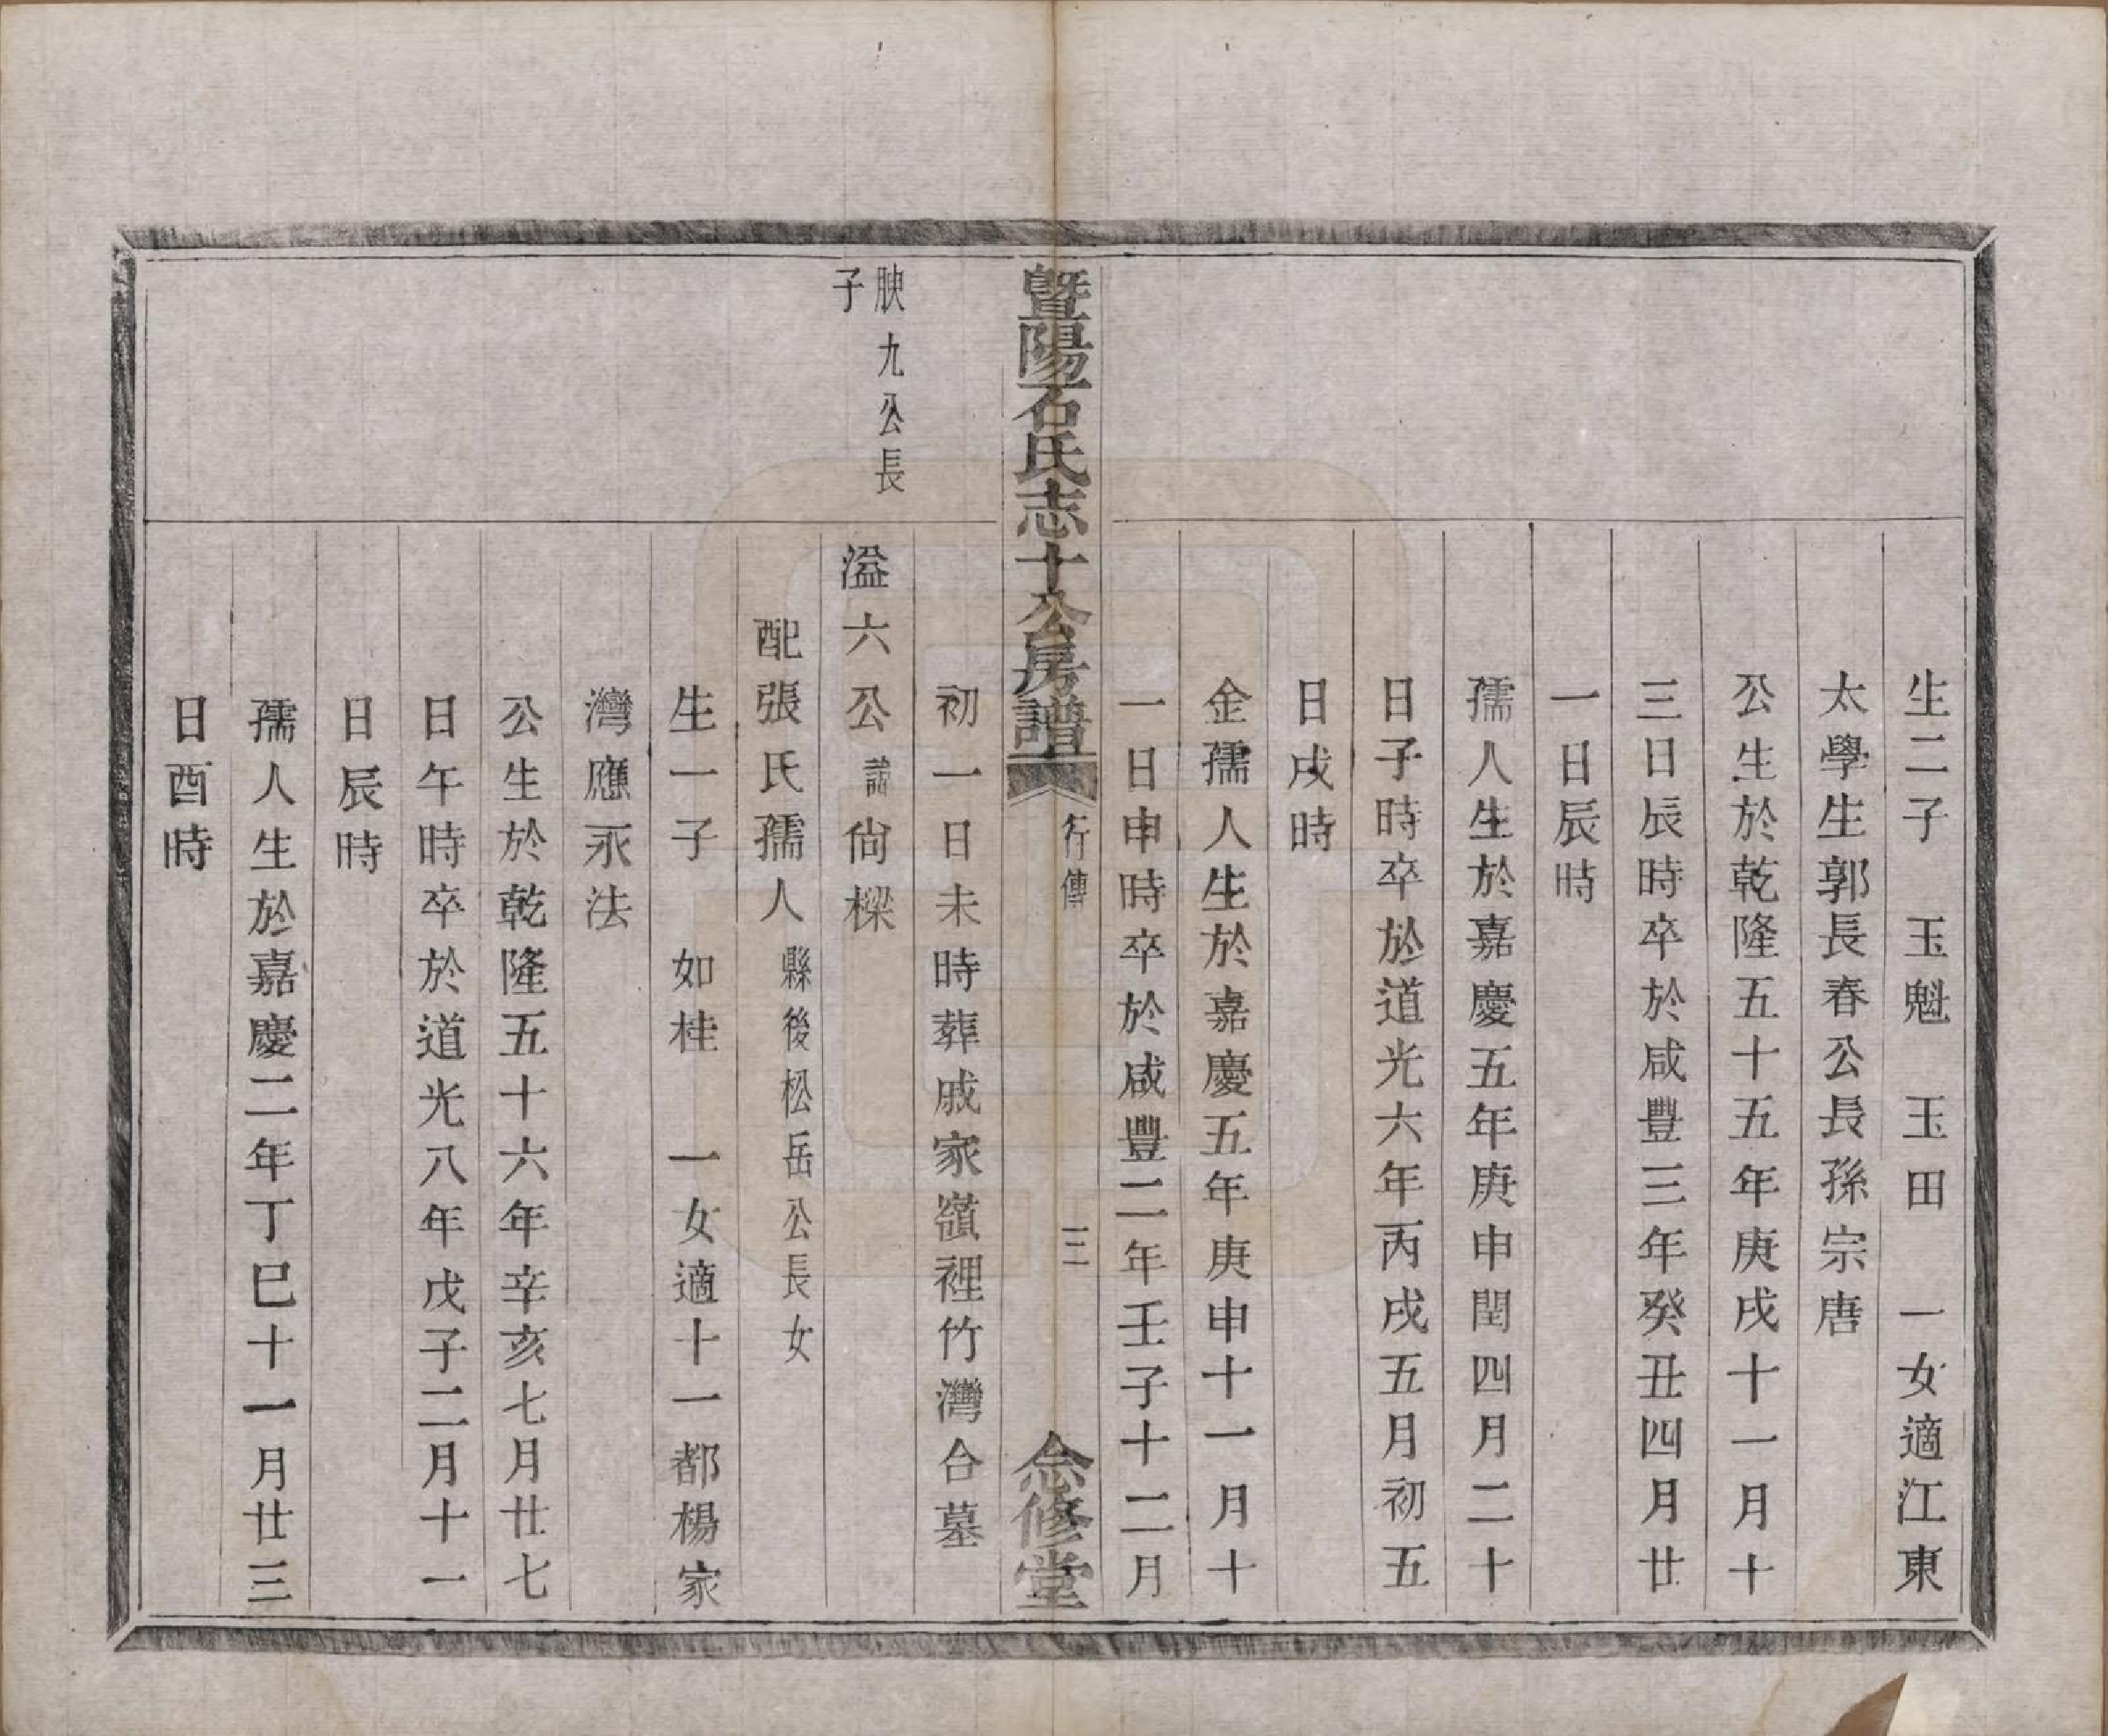 生二子　玉魁　玉田　一女適江東
太學生郭長春公長孫宗唐
公生於乾隆五十五年庚戌十一月十
三日辰時卒於咸豐三年癸丑四月廿
一日辰時
孺人生於嘉慶五年庚申閏四月二十
日子時卒於道光六年丙戌五月初五
日戌時
金孺人生於嘉慶五年庚申十一月十
一日申時卒於咸豐二年壬子十二月
暨陽石氏志十公房譜
行傳
三
叅修堂
初一日未時葬戚家嶺裡竹灣合墓
腴九公長
子
溢六公諱尙樑
配張氏孺人縣後松岳公長女
生一子　如桂　一女適十一都楊家
灣應永法
公生於乾隆五十六年辛亥七月廿七
日午時卒於道光八年戊子二月十一
日辰時
孺人生於嘉慶二年丁巳十一月廿三
日酉時